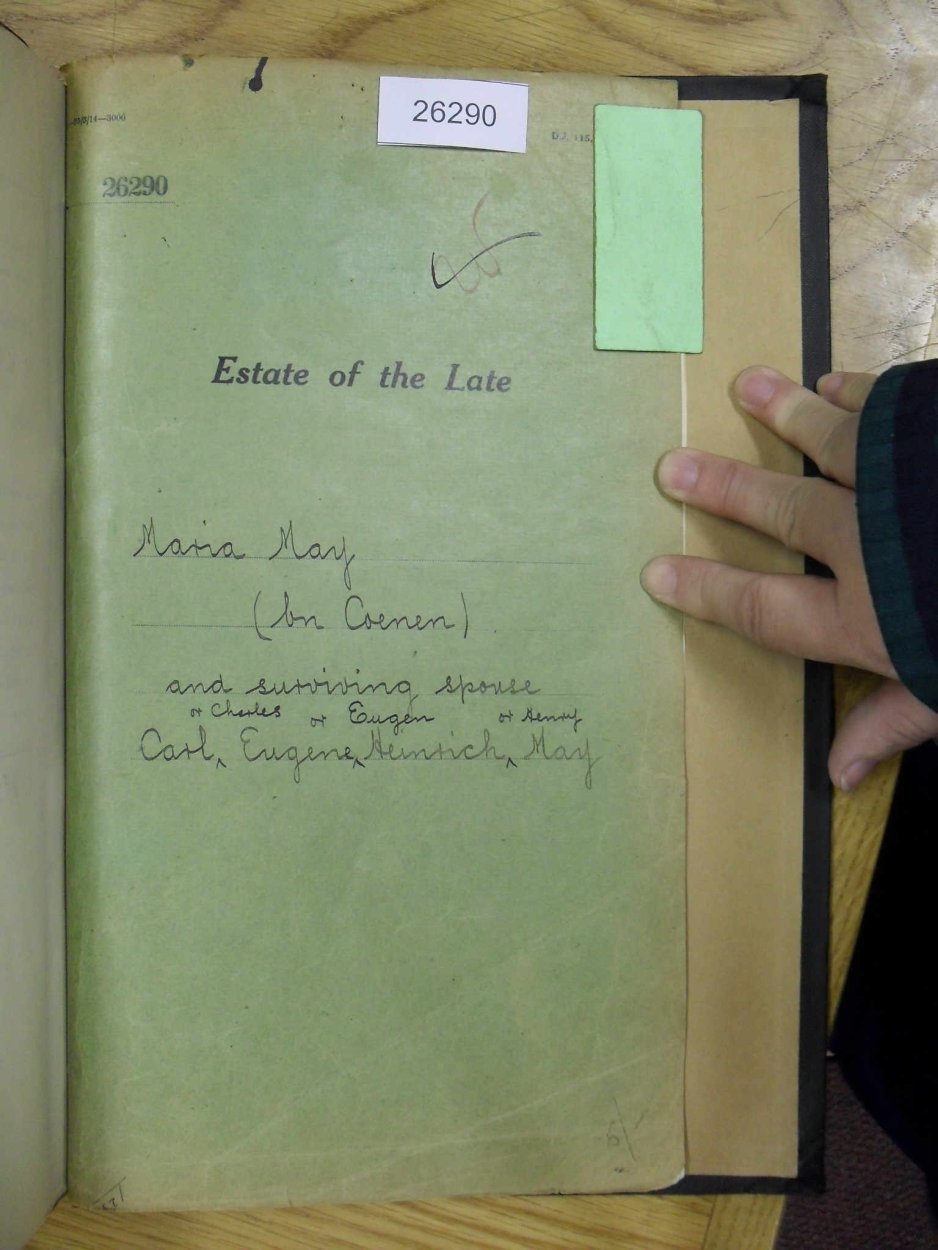 26290
26290
Estate of the Late
Maria May
(bn Coenen)
and surviving spouse
or Charles or Eugen or Henry
Carl, Eugene, Heinrich, May